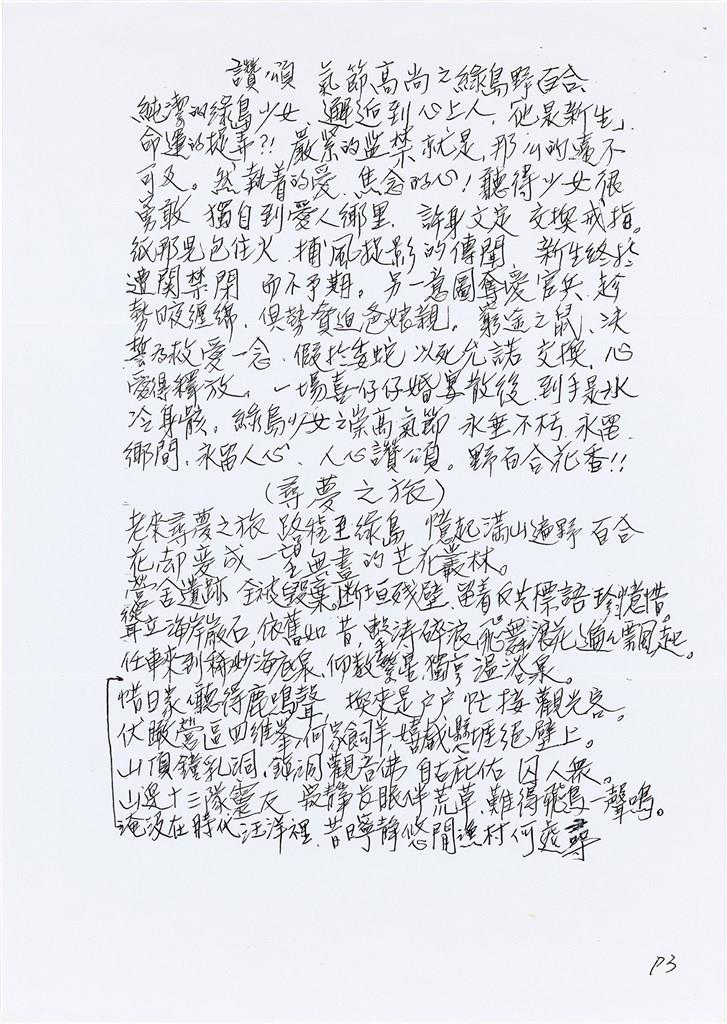 讚頌 氣節高尚之綠島野百合
純潔的綠島少女、邂逅到心上人，他是新生」
命運的捉弄？！嚴緊的监禁就是，那么的遠不
可及。然執着的愛、焦念的心！聽得少女很
勇敢 獨自到愛人鄉里、許身文定 交換戒指。
紙那見包住火、捕風捉影的傳聞、新生終於
遭関禁閉 而不予期。另一意圖奪愛官兵、趁
勢日夜纏綿、俱勢賫迫爸娘親」。窮途之鼠、决
誓為救愛一念、假於委蛇 以死允諾 交換、心
愛得釋放。一場喜仔仔婚宴散後、到手是冰
冷身骸。綠島少女之崇高氣節 永垂不朽、永留
鄉間、永留人心、人心讚頌。野百合花香！！
（尋夢之旅）
老來尋夢之旅 路程至綠島 憶起滿山遍野 百合
花，却变成一望無盡的芒花叢林。
營舍遺跡 全被毀棄。断垣残壁、留着反共標語 珍憶惜。
聳立海岸嚴石、依舊如昔、擊涛碎浪 飛舞浪花 遍々飄起。
任車來到稀妙海底泉、仰数繁星、獨享温浴泉。
惜日家々聽得鹿鳴聲、換來是户户忙接觀光客。
伏瞰營區四維峯、何家飼羊 嬉戲懸堐絕壁上。
山頂鐘乳洞、鐘洞觀音佛 自古庇佑 囚人衆。
山边十三隊靈友 寂静首眠伴荒草、難得飛鳥一聲鳴。
淹沒在時代汪洋裡、昔日寧静悠閒漁村何處尋
P3